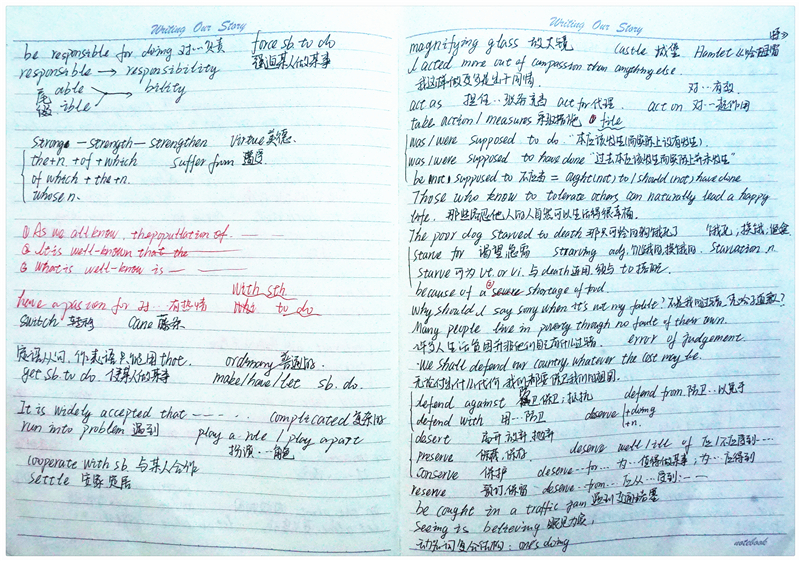 Writing Our Story
be responsible for doing 对…负责 force sb. to do
responsible → responsibility 强迫某人做某事
尾缀 able ible → bility
strong — strength — strengthen virtue 美德.
the+n. +of+which suffer from 遭受
of which + the+n.
whose n.
① As we all know, the population of
② It is well-known that the
③ What is well-know is —
with sth
have a passion for 对…有热情 to do
switch 转移 Cane 藤条
宾语从句, 作表语只能用 that. ordinary 普通的.
get sb. to do. 使某人做某事 make/have/let sb. do.
It is widely accepted that ---- complicated 复杂的
run into problem 遇到 play a role / play apart
扮演…角色
cooperate with sb 与某人合作
settle 安家定居
Writing Our Story
magnifying glass 放大镜 castle 城堡 Hamlet 哈姆雷特
I acted more out of compassion than anything else.
我这样做更多是出于同情. 对…有效
act as 担任 act for 代理. act on 对…起作用
take action / measures 采取措施 file
was/were supposed to do "本应该发生(而实际上没有发生)
was/were supposed to have done "过去本应该发生而实际上并未发生"
be (not) supposed to 不应去 = ought (not) to / should (not) have done
Those who know to tolerate others can naturally lead a happy
life. 那些宽忍他人的人自然可以生活得很幸福.
The poor dog starved to death 那只可怜的狗饿死了
starve for 渴望急需 starving adj. 饥饿的, 挨饿的. starvation n.
starve 可为 vt. or vi. 与 death 连用, 须与 to 搭配.
because of a severe shortage of food.
Why should I say sorry when it's not my fable?
Many people live in poverty though no fault of their town.
许多人生活贫困并非他们自己有什么过错. error of judgement.
We shall defend our country, whatever the cost may be.
无论付出什么代价, 我们都要保卫我们的祖国.
defend against 保卫; 抵抗 defend from 防卫…以免于
defend with 用…防卫 deserve +doing +n.
desert 离开 放弃 抛弃
preserve 保藏, 保存 deserve well/ill of 应/不应受到----
conserve 保护 deserve…for… 为…值得做某事; 为…应得到
reserve 预订, 保留 deserve…from… 应从…受到…
be caught in a traffic jam 遇到交通堵塞
Seeing is believing 眼见为实;
动名词复合结构: one's doing
notebook